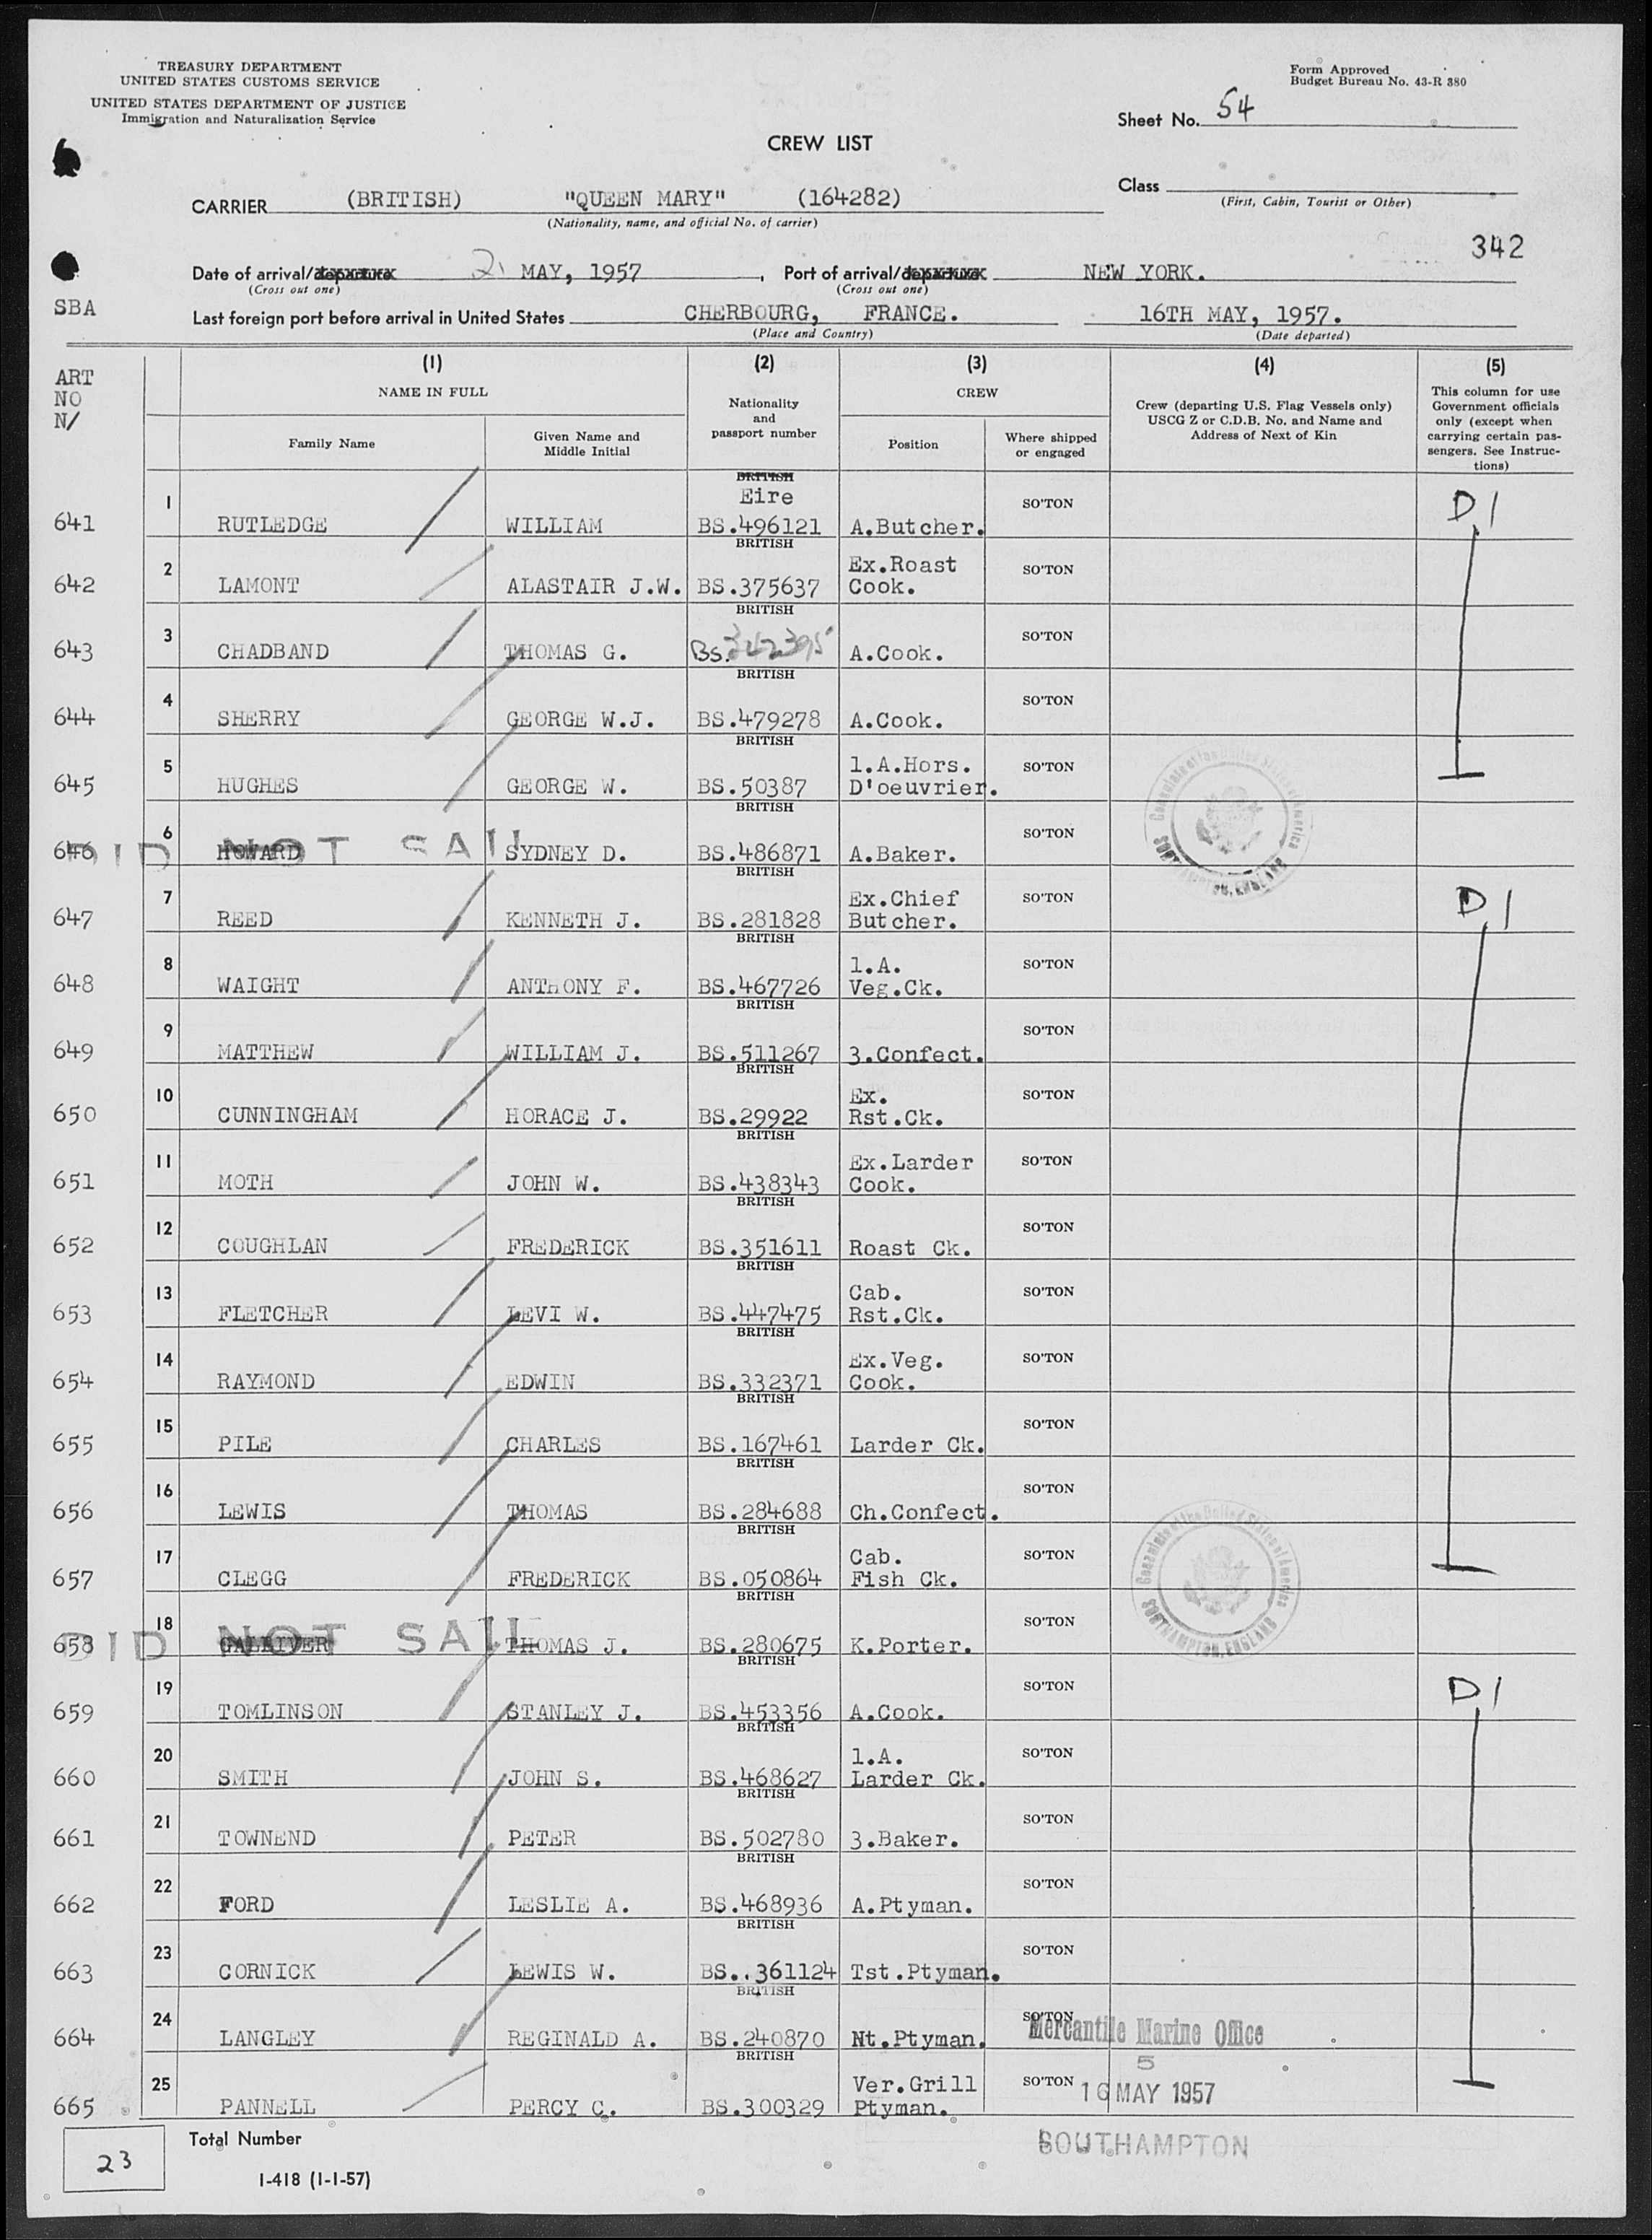 TREASURY DEPARTMENT
UNITED STATES CUSTOMS SERVICE
UNITED STATES DEPARTMENT OF JUSTICE
Immigration and Naturalization Service
Form Approved
Budget Bureau No. 43-R 380
Sheet No. 54
CREW LIST
Class
(First, Cabin, Tourist or Other)
CARRIER (BRITISH) "QUEEN MARY" (164282)
(Nationality, name, and official No. of carrier)
342
Date of arrival/departure MAY, 1957, Port of arrival/departure NEW YORK.
(Cross out one) (Cross out one)
SBA
Last foreign port before arrival in United States CHERBOURG, FRANCE. 16TH MAY, 1957.
(Place and Country) (Date departed)
ART
NO
N/
(1) (2) (3) (4) (5)
NAME IN FULL
Family Name
Given Name and
Middle Initial
Nationality
and
passport number
CREW
Position
Where shipped
or engaged
Crew (departing U.S. Flag Vessels only)
USCG Z or C.D.B. No. and Name and
Address of Next of Kin
This column for use
Government officials
only (except when
carrying certain pas-
sengers. See Instruc-
tions)
BRITISH
Eire
641 1 RUTLEDGE WILLIAM BS.496121 A.Butcher. SO'TON D 1
BRITISH
642 2 LAMONT ALASTAIR J.W. BS.375637 Ex.Roast Cook. SO'TON
BRITISH
643 3 CHADBAND THOMAS G. BS.342395 A.Cook. SO'TON
BRITISH
644 4 SHERRY GEORGE W.J. BS.479278 A.Cook. SO'TON
BRITISH
645 5 HUGHES GEORGE W. BS.50387 1.A.Hors. D'oeuvrier. SO'TON
BRITISH
646 6 HOWARD SYDNEY D. BS.486871 A.Baker. SO'TON
DID NOT SAIL
BRITISH
647 7 REED KENNETH J. BS.281828 Ex.Chief Butcher. SO'TON D 1
BRITISH
648 8 WAIGHT ANTHONY F. BS.467726 1.A. Veg.Ck. SO'TON
BRITISH
649 9 MATTHEW WILLIAM J. BS.511267 3.Confect. SO'TON
BRITISH
650 10 CUNNINGHAM HORACE J. BS.29922 Ex. Rst.Ck. SO'TON
BRITISH
651 11 MOTH JOHN W. BS.438343 Ex.Larder Cook. SO'TON
BRITISH
652 12 COUGHLAN FREDERICK BS.351611 Roast Ck. SO'TON
BRITISH
653 13 FLETCHER LEVI W. BS.447475 Cab. Rst.Ck. SO'TON
BRITISH
654 14 RAYMOND EDWIN BS.332371 Ex.Veg. Cook. SO'TON
BRITISH
655 15 PILE CHARLES BS.167461 Larder Ck. SO'TON
BRITISH
656 16 LEWIS THOMAS BS.284688 Ch.Confect. SO'TON
BRITISH
657 17 CLEGG FREDERICK BS.050864 Cab. Fish Ck. SO'TON
BRITISH
658 18 GALLIVER THOMAS J. BS.280675 K.Porter. SO'TON
DID NOT SAIL
BRITISH
659 19 TOMLINSON STANLEY J. BS.453356 A.Cook. SO'TON D 1
BRITISH
660 20 SMITH JOHN S. BS.468627 1.A. Larder Ck. SO'TON
BRITISH
661 21 TOWNEND PETER BS.502780 3.Baker. SO'TON
BRITISH
662 22 FORD LESLIE A. BS.468936 A.Ptyman. SO'TON
BRITISH
663 23 CORNICK LEWIS W. BS..361124 Tst.Ptyman. SO'TON
BRITISH
664 24 LANGLEY REGINALD A. BS.240870 Nt.Ptyman. SO'TON
BRITISH
665 25 PANNELL PERCY C. BS.300329 Ver.Grill Ptyman. SO'TON
Consulate of the United States of America
SOUTHAMPTON, ENGLAND
Consulate of the United States of America
SOUTHAMPTON, ENGLAND
Mercantile Marine Office
5
16 MAY 1957
SOUTHAMPTON
23
Total Number
I-418 (1-1-57)